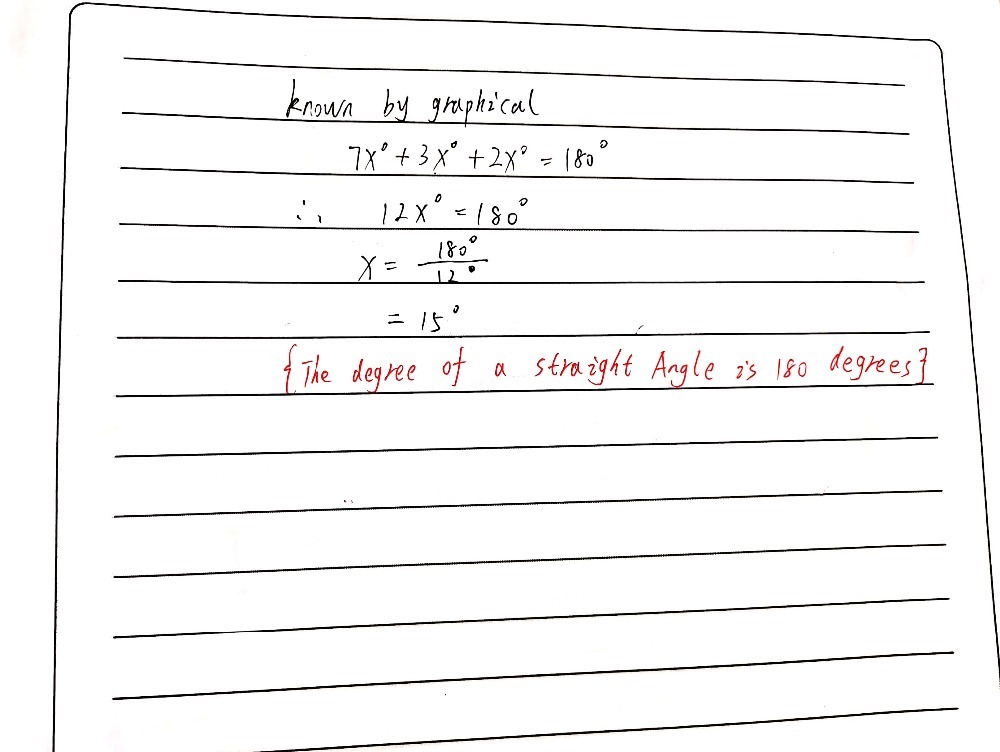 known by graphical
7x° + 3x° + 2x° = 180°
∴ 12x° = 180°
x = 180° / 12°
= 15°
{The degree of a straight Angle is 180 degrees}